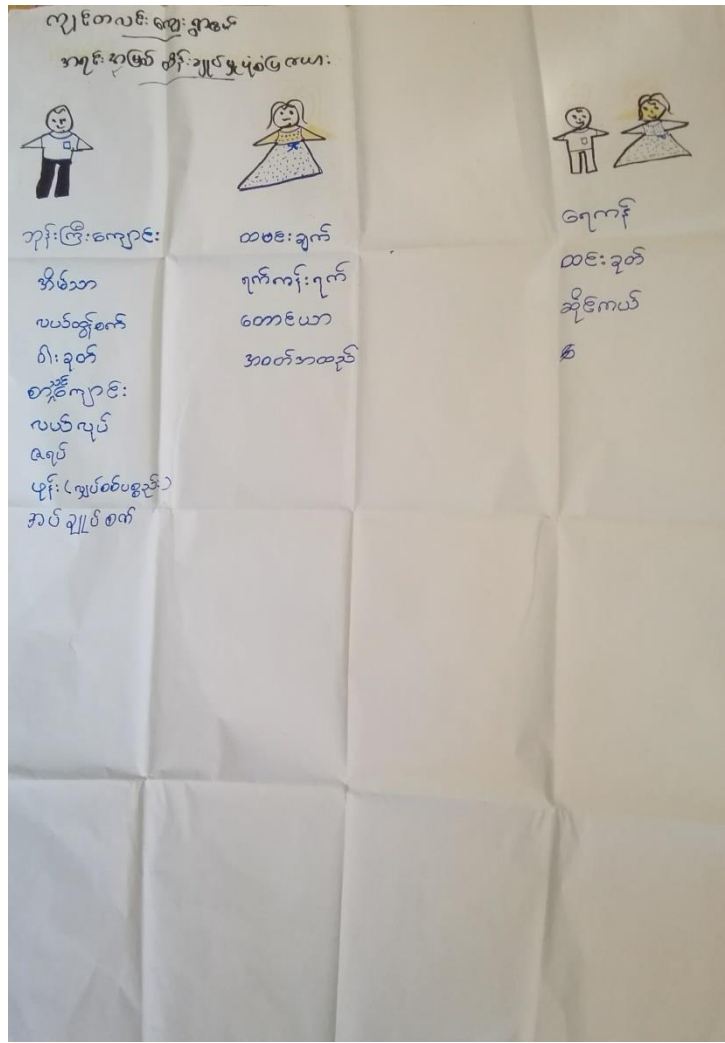 ကျင်တလင်းကျေးရွာအုပ်
အရင်းအမြစ် ထိန်းချုပ်မှုပုံစံပြဇယား
ဘုန်းကြီးကျောင်း
အိမ်သာ
လယ်ထွန်စက်
ဝါးခုတ်
စာသင်ကျောင်း
လယ်လုပ်
ဇရပ်
ဖုန်း (လျှပ်စစ်ပစ္စည်း)
အပ်ချုပ်စက်
ထမင်းချက်
ရက်ကန်းရက်
တောင်ယာ
အဝတ်အထည်
ရေကန်
ထင်းခုတ်
ဆိုင်ကယ်